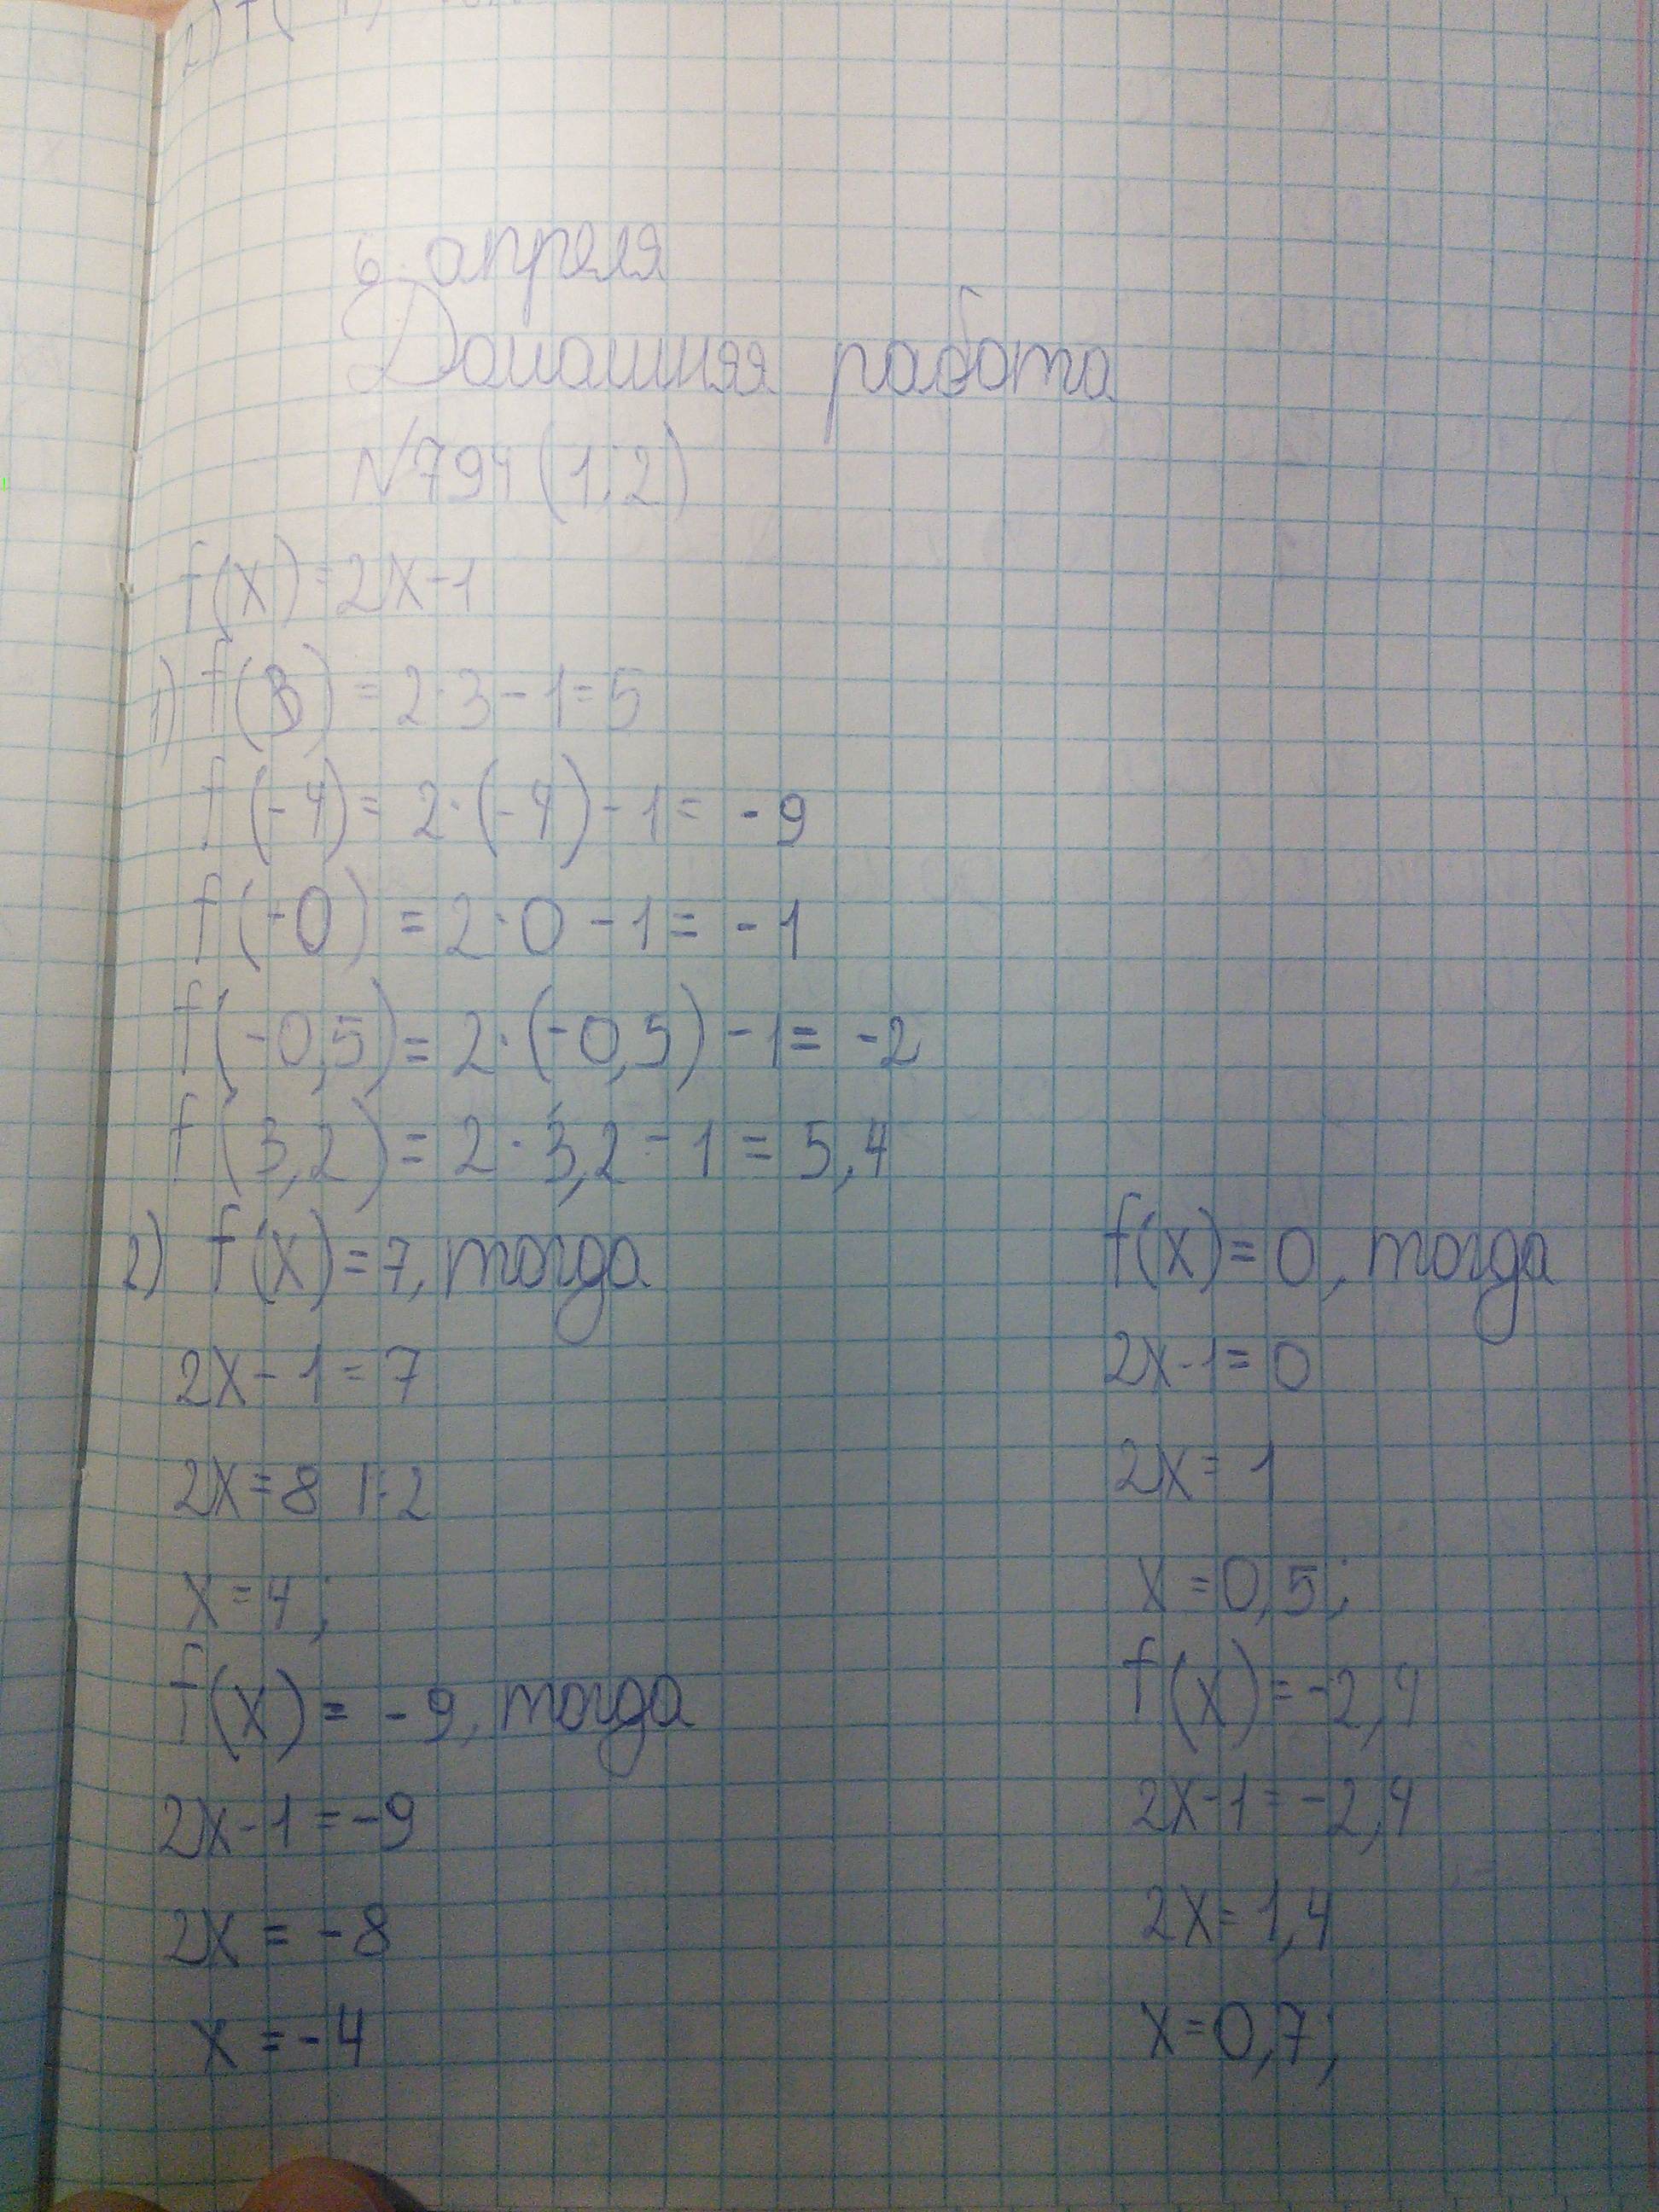 6 апреля
Домашняя работа
№794(1;2)
f(x)=2x-1
1) f(3)=2·3-1=5
f(-4)=2·(-4)-1=-9
f(-0)=2·0-1=-1
f(-0,5)=2·(-0,5)-1=-2
f(3,2)=2·3,2-1=5,4
2) f(x)=7, тогда
2x-1=7
2x=8 |:2
x=4;
f(x)=-9, тогда
2x-1=-9
2x=-8
x=-4
f(x)=0, тогда
2x-1=0
2x=1
x=0,5;
f(x)=-2,4
2x-1=-2,4
2x=1,4
x=0,7;